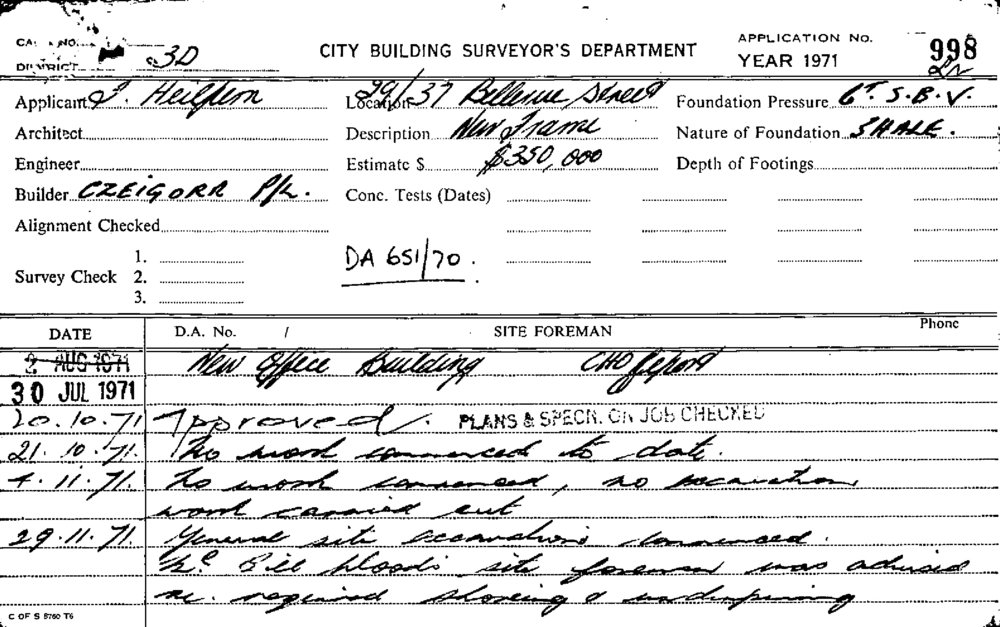 CITY BUILDING SURVEYOR'S DEPARTMENT
APPLICATION No. 998
YEAR 1971
DISTRICT 3D
Applicant Heilpern
Location 29/37 Bellevue Street
Foundation Pressure 6T. S.B.V.
Architect
Description New Frame
Nature of Foundation SHALE.
Engineer
Estimate $ $350,000
Depth of Footings
Builder CZEIGORR P/L.
Conc. Tests (Dates)
Alignment Checked
DA 651/70.
Survey Check 1.
2.
3.
DATE D.A. No. / SITE FOREMAN Phone
2 AUG 1971 New Office Building CHO Report
30 JUL 1971
20.10.71 Approved. PLANS & SPECN. ON JOB CHECKED
21.10.71. No work commenced to date.
4.11.71. No work commenced, no excavation
work carried out
29.11.71. General site excavations commenced.
Mr. Bill site foreman was advised
re. required shoring & underpinning
C OF S 8760 T6